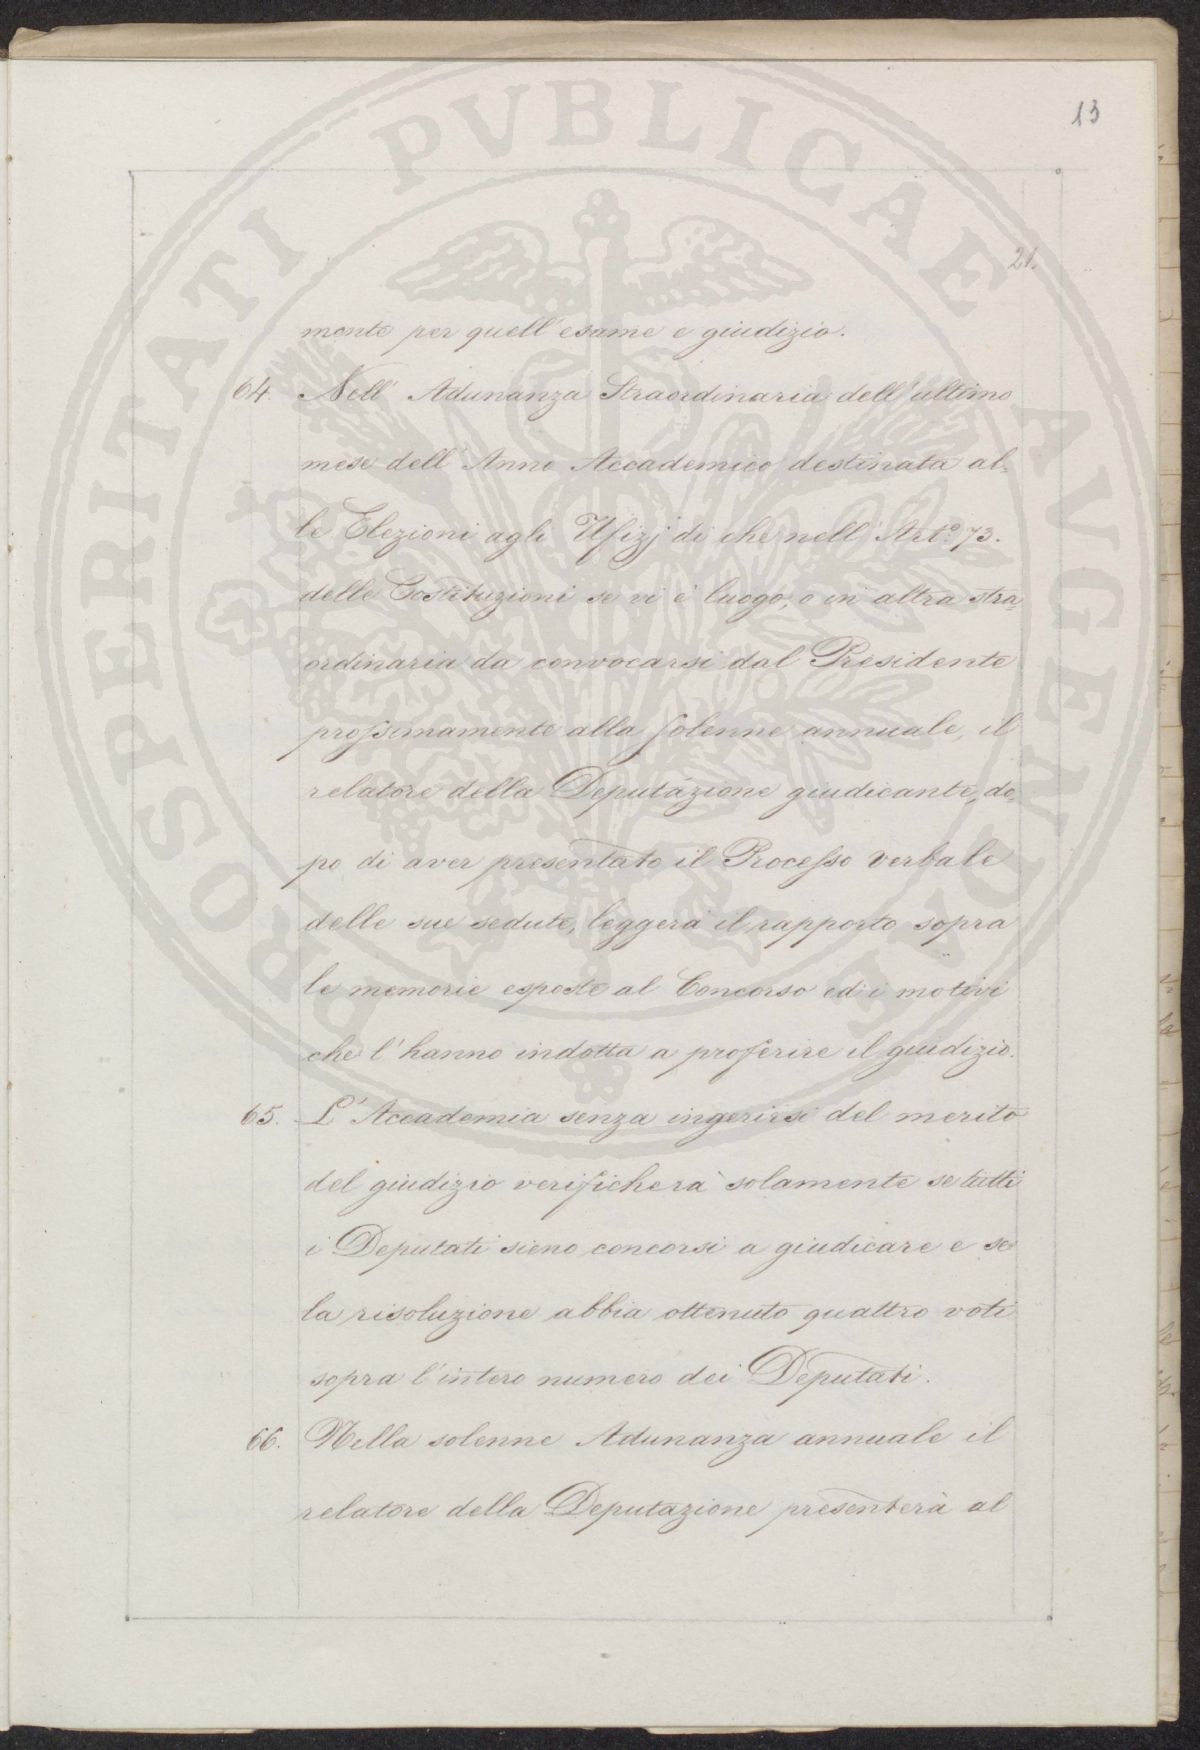 13
21.
mente per quell'esame e giudizio.
64. Nell' Adunanza Straordinaria dell'ultimo
mese dell'Anno Accademico destinata al=
le Elezioni agli Ufizj di che nell'Art.º 73.
delle Costituzioni se vi è luogo, o in altra stra=
ordinaria da convocarsi dal Presidente
prossimamente alla solenne annuale, il
relatore della Deputazione giudicante, do=
po di aver presentato il Processo verbale
delle sue sedute, leggerà il rapporto sopra
le memorie esposte al Concorso ed i motivi
che l'hanno indotta a proferire il giudizio.
65. L'Accademia senza ingerirsi del merito
del giudizio verificherà solamente se tutti
i Deputati sieno concorsi a giudicare e se
la risoluzione abbia ottenuto quattro voti
sopra l'intero numero dei Deputati.
66. Nella solenne Adunanza annuale il
relatore della Deputazione presenterà al
PROSPERITATI PVBLICAE AVGENDAE